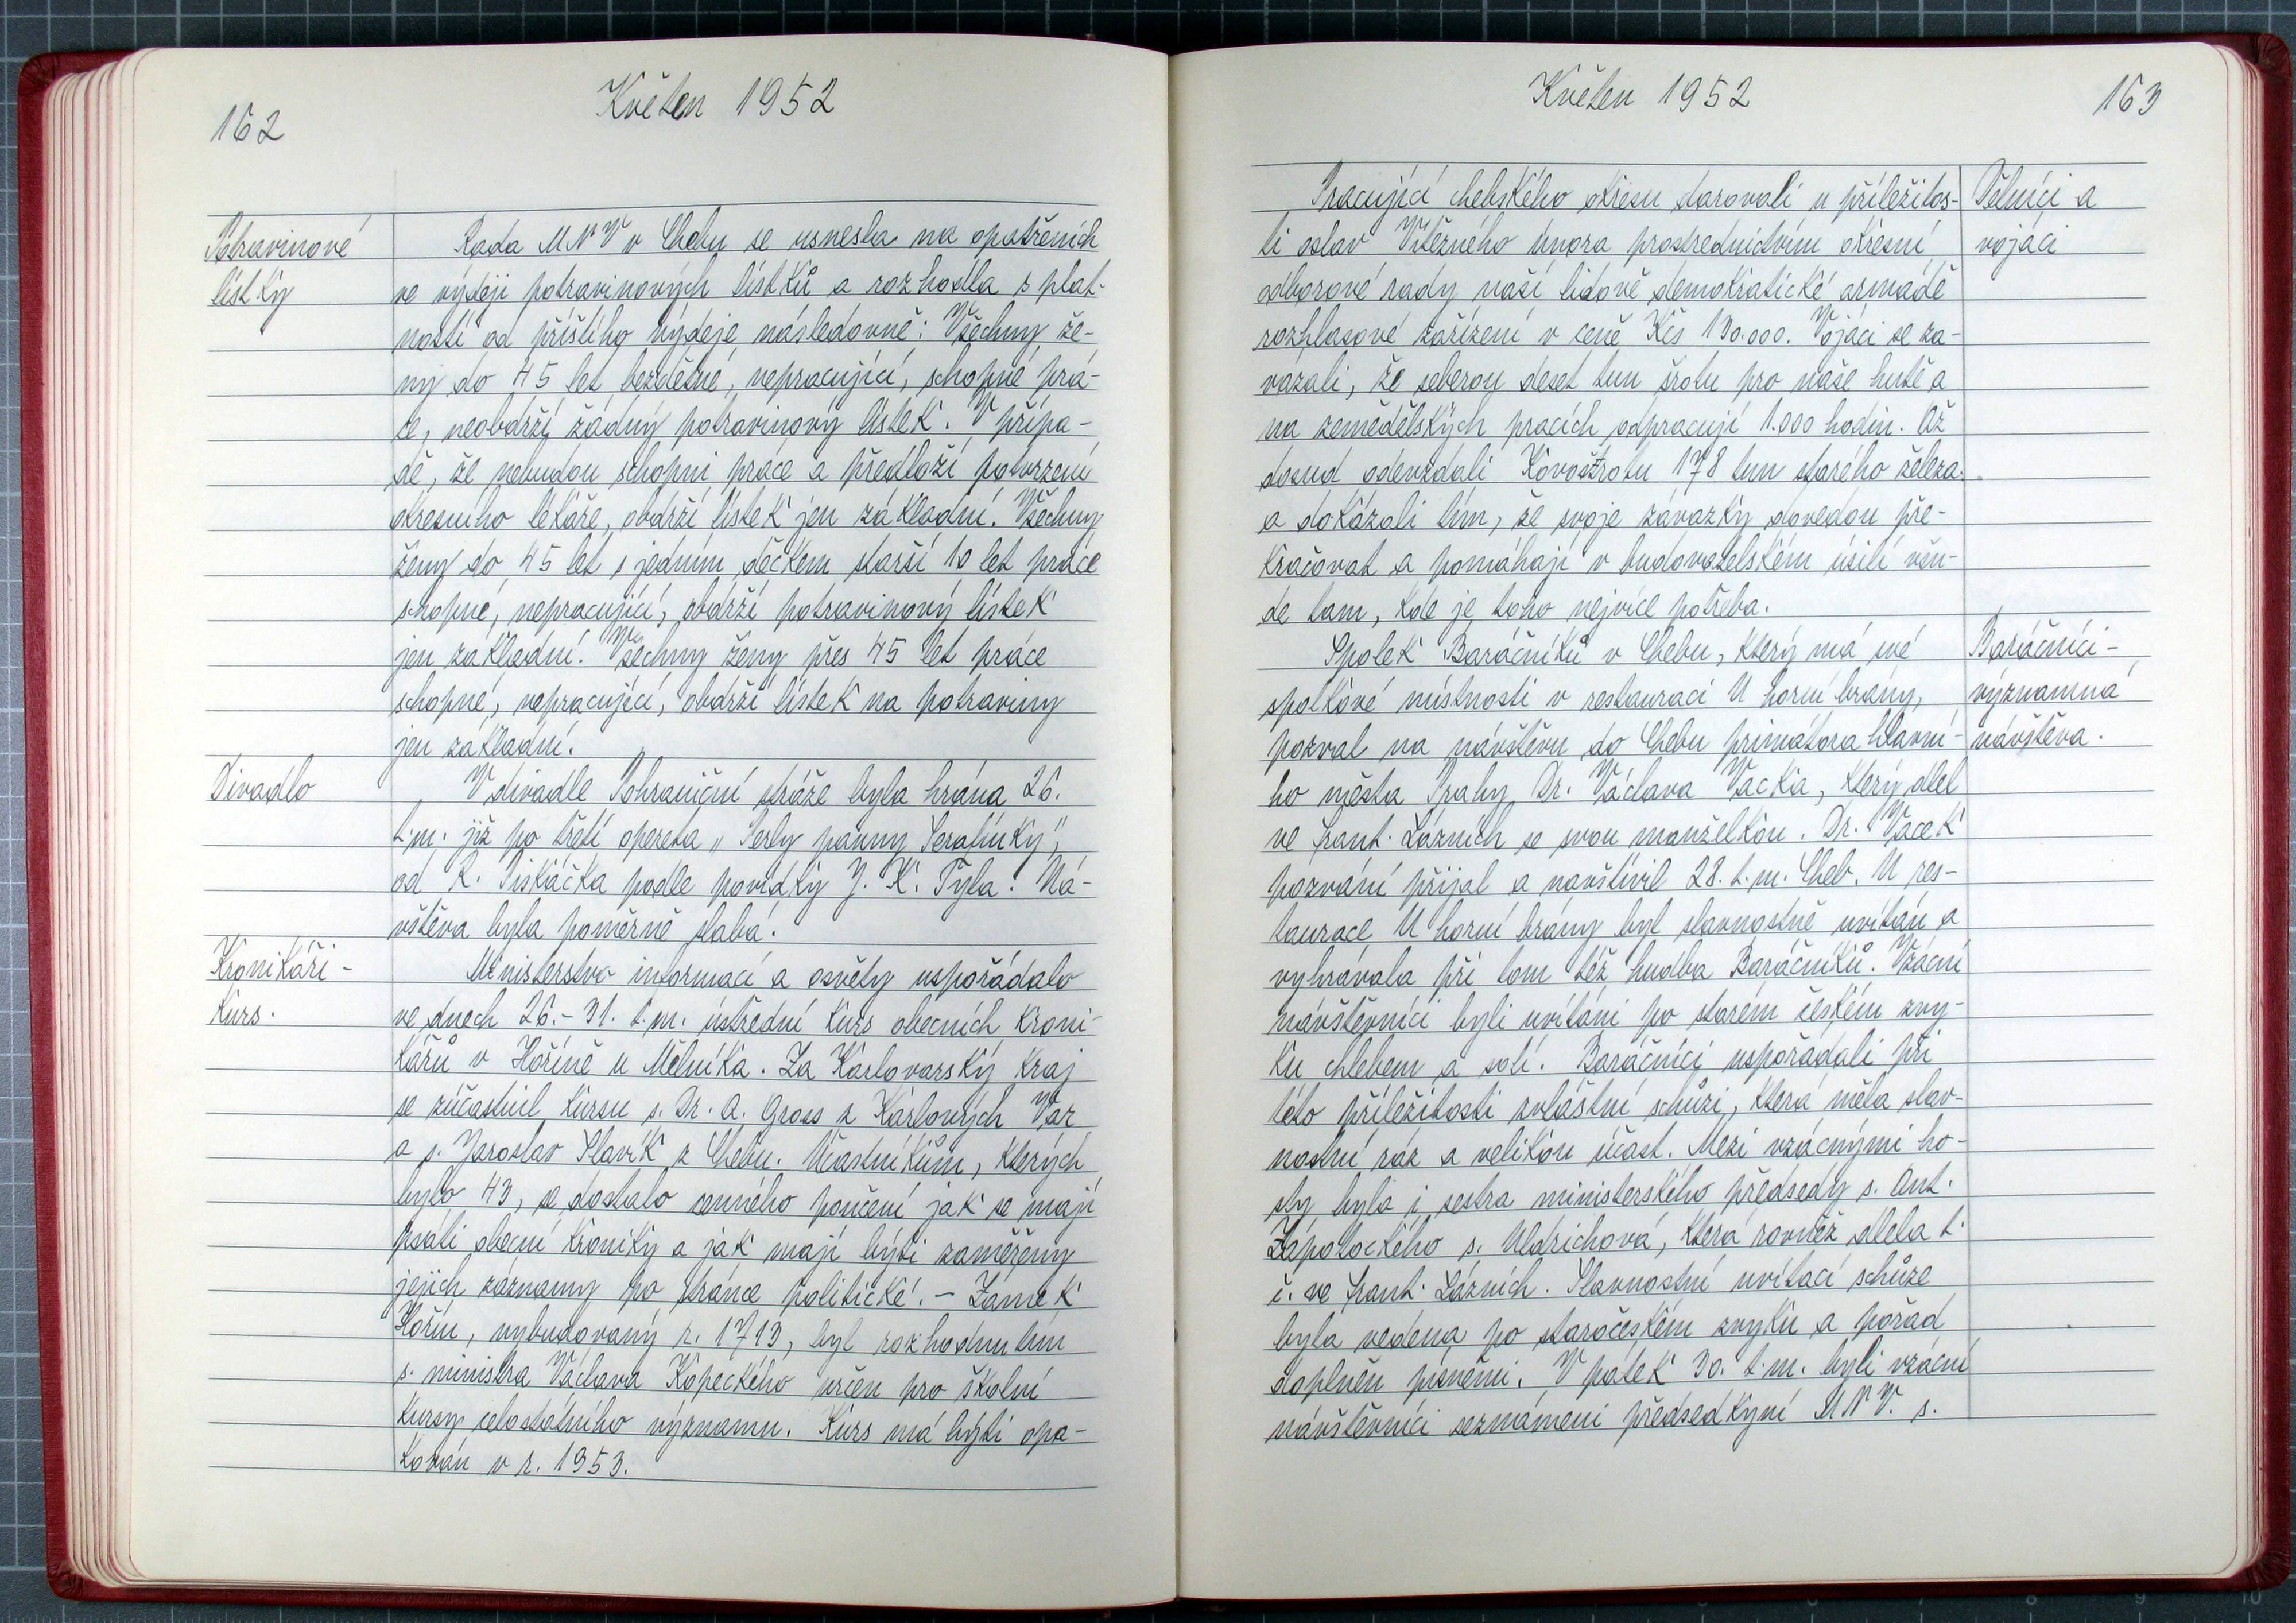 162
Květen 1952
Potravinové
lístky
Rada MNV v Chebu se usnesla na opatřeních
ve výdeji potravinových lístků a rozhodla s plat-
ností od příštího výdeje následovně: Všechny že-
ny do 45 let bezdětné, nepracující, schopné prá-
ce, neobdrží žádný potravinový lístek. V přípa-
dě, že nebudou schopni práce a předloží potvrzení
okresního lékaře, obdrží lístek jen základní. Všechny
ženy do 45 let s jedním děckem starší 10 let práce
schopné, nepracující, obdrží potravinový lístek
jen základní. Všechny ženy přes 45 let práce
schopné, nepracující, obdrží lístek na potraviny
jen základní.
Divadlo
V divadle Pohraniční stráže byla hrána 26.
t.m. již po třetí opereta „Perly panny Serafinky",
od R. Piskáčka podle povídky J. K. Tyla. Ná-
vštěva byla poměrně slabá.
Kronikáři -
kurs.
Ministerstvo informací a osvěty uspořádalo
ve dnech 26.- 31. t.m. ústřední kurs obecních kroni-
kářů v Hoříně u Mělníka. Za Karlovarský kraj
se zúčastnil kursu s. Dr. A. Gross z Karlových Var
a s. Jaroslav Slavík z Chebu. Účastníkům, kterých
bylo 43, se dostalo cenného poučení jak se mají
psáti obecní kroniky a jak mají býti zaměřeny
jejich záznamy po stránce politické. - Zámek
Hořín, vybudovaný r. 1713, byl rozhodnutím
s. ministra Václava Kopeckého určen pro školní
kursy celostátního významu. Kurs má býti opa-
kován v r. 1953.
Květen 1952
163
Pracující chebského okresu darovali u příležitos-
ti oslav Vítězného února prostřednictvím okresní
odborové rady naší lidově demokratické armádě
rozhlasové zařízení v ceně Kčs 130.000. Vojáci se za-
vázali, že seberou deset tun šrotu pro naše hutě a
na zemědělských pracích odpracují 1.000 hodin. Až
dosud odevzdali Kovošrotu 178 tun starého železa
a dokázali tím, že svoje závazky dovedou pře-
kračovat a pomáhají v budovatelském úsilí všu-
de tam, kde je toho nejvíce potřeba.
Dělníci a
vojáci
Spolek Baráčníků v Chebu, který má své
spolkové místnosti v restauraci U horní brány,
pozval na návštěvu do Chebu primátora hlavní-
ho města Prahy Dr. Václava Vacka, který dlel
ve Frant. Lázních se svou manželkou. Dr. Vacek
pozvání přijal a navštívil 28. t.m. Cheb. U res-
taurace U horní brány byl slavnostně uvítán a
vyhrávala při tom též hudba Baráčníků. Vzácní
návštěvníci byli uvítáni po starém českém zvy-
ku chlebem a solí. Baráčníci uspořádali při
této příležitosti zvláštní schůzi, která měla slav-
nostní ráz a velikou účast. Mezi vzácnými ho-
sty byla i sestra ministerského předsedy s. Ant.
Zápotockého s. Uldrichová, která rovněž dlela t.
č. ve Frant. Lázních. Slavnostní uvítací schůze
byla vedena po staročeském zvyku a pořad
doplněn písněmi. V pátek 30. t.m. byli vzácní
návštěvníci seznámeni předsedkyní MNV. s.
Baráčníci -
významná
návštěva.